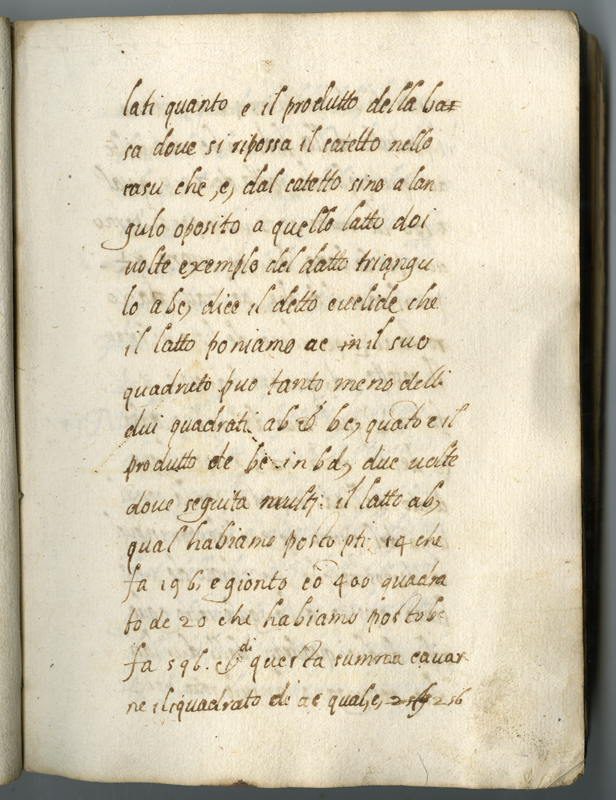 lati quanto e il produtto della ba=
sa dove si ripossa il catetto nello
casu che, e, dal catetto sino a lan
gulo oposito a quello latto doi
volte exemplo del datto triangu
lo abc, dice il detto euclide che
il latto poniamo ac in il suo
quadrato puo tanto meno delli
dui quadrati ab et bc, quãto e il
produtto de bc in bd, due volte
dove seguita multi: il latto ab,
qual habiamo posto pti: 14 che
fa 196, e gionto cõ 400 quadra
to de 20 che habiamo posto bc
fa 596. e di questa summa cavar
ne il quadrato de ac qual, e, 256